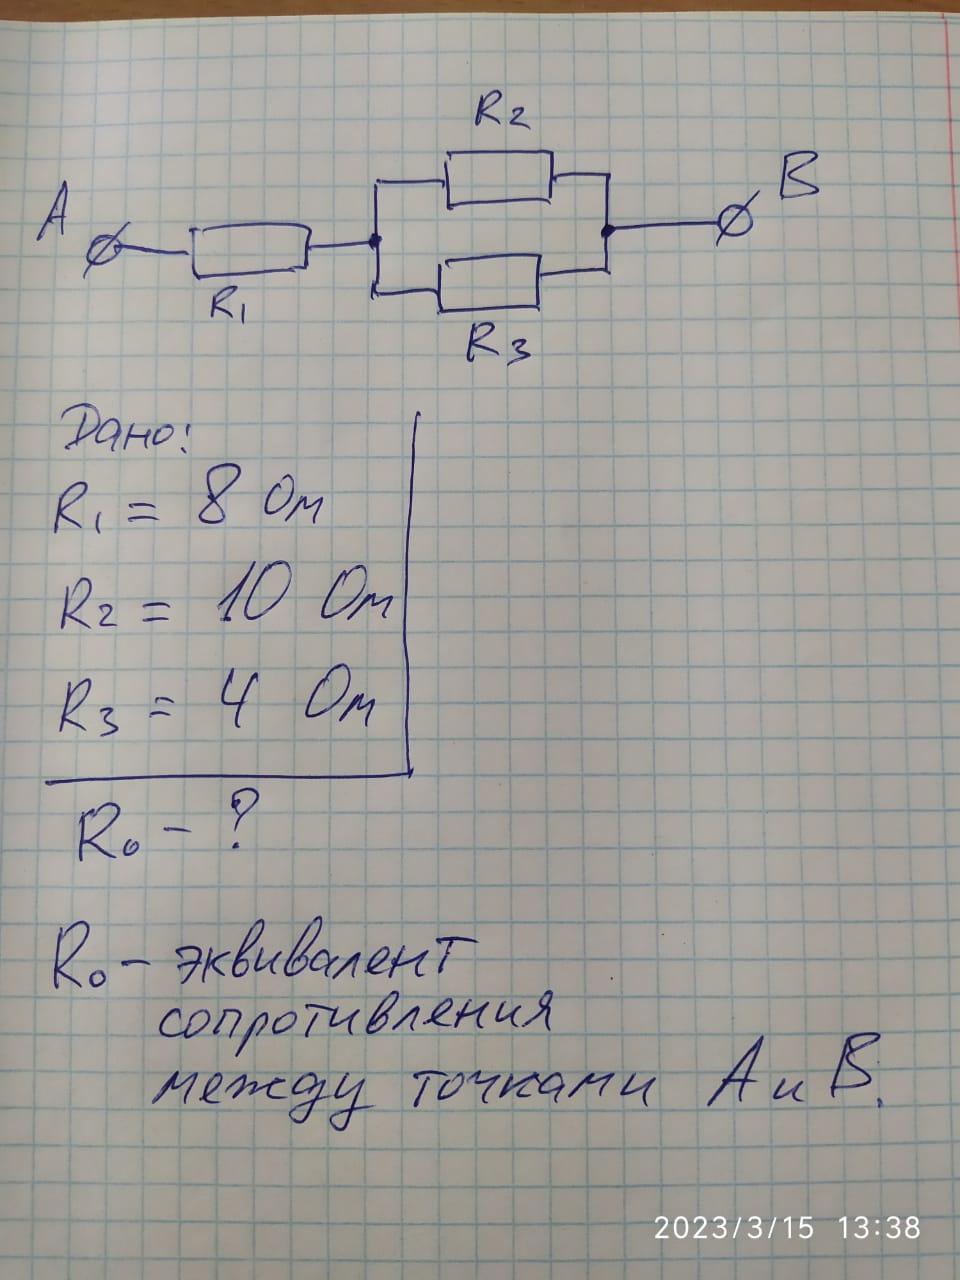 R2
A
B
R1
R3
Дано:
R1 = 8 Ом
R2 = 10 Ом
R3 = 4 Ом
R0 - ?
R0 - эквивалент
сопротивления
между точками А и В.
2023/3/15 13:38